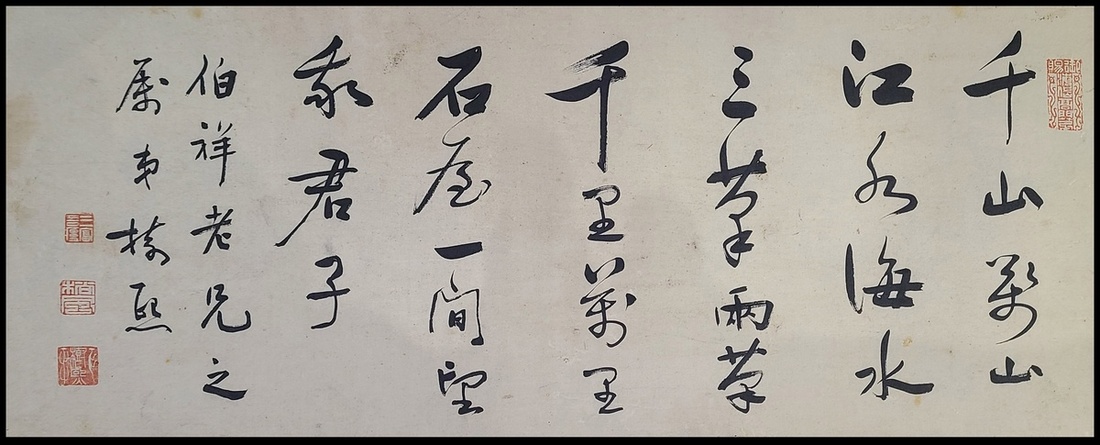 千山萬山
江水海水
三草兩草
千里萬里
石屋一間望
我君子
伯祥老兄之
属弟
熙